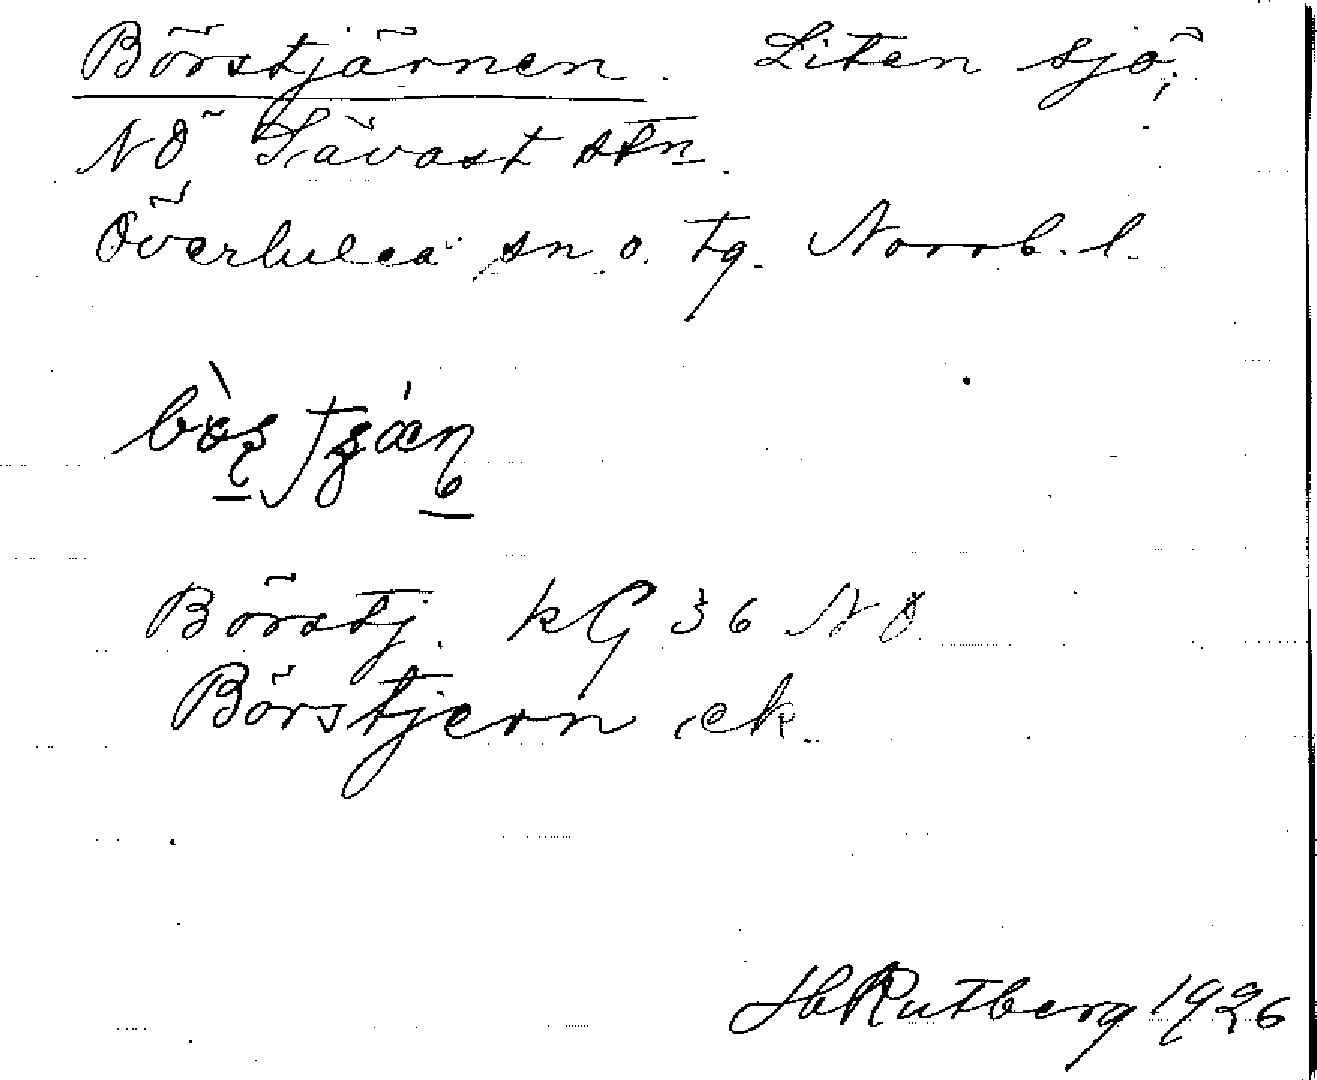 Börstjärnen. Liten sjö;
NÖ Sävast stn.
Överluleå sn o. tg. Norrb. l.
Börstj. kG 36 NÖ
Börstjern ek.
H Rutberg 1926